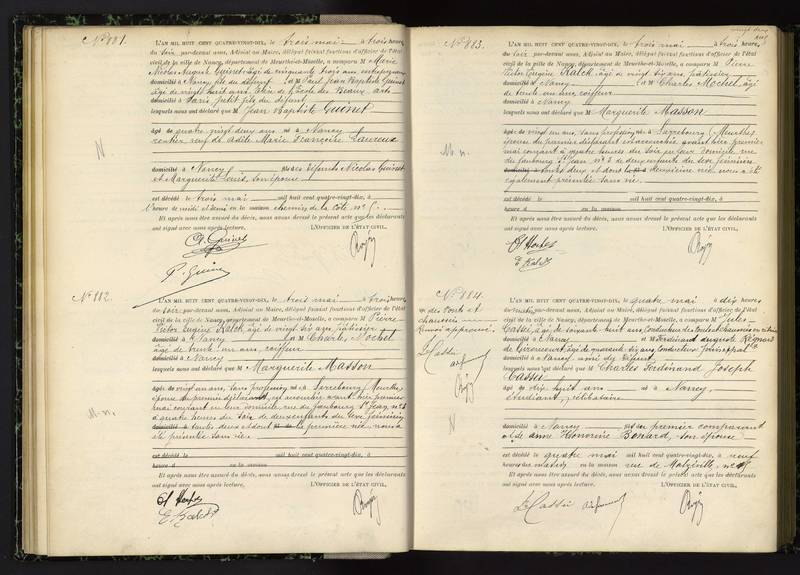 N° 881.
L'AN MIL HUIT CENT QUATRE-VINGT-DIX, le trois mai à trois heures
du soir par-devant nous, Adjoint au Maire, délégué faisant fonctions d'officier de l'état
civil de la ville de Nancy, département de Meurthe-et-Moselle, a comparu M Marie
Nicolas Auguste Guinet âgé de cinquante trois ans, entrepreneur
domicilié à Nancy fils du défunt et M Paul Jean Baptiste Guinet
âgé de vingt huit ans, élève de l'École des Beaux-arts
domicilié à Paris, petit fils du défunt
lesquels nous ont déclaré que M Jean Baptiste Guinet
âgé de quatre vingt deux ans né à Nancy
rentier veuf de Adèle Marie Françoise Laureux
N
domicilié à Nancy fils des défunts Nicolas Guinet
et Marguerite Louis, son épouse
est décédé le trois mai mil huit cent quatre-vingt-dix, à
l'heure de midi et demi en la maison chemin de la Côte n°
Et après nous être assuré du décès, nous avons dressé le présent acte que les déclarants
ont signé avec nous après lecture. L'OFFICIER DE L'ÉTAT CIVIL,
P. Guinet
N° 882.
L'AN MIL HUIT CENT QUATRE-VINGT-DIX, le trois mai à trois heures
du soir par-devant nous, Adjoint au Maire, délégué faisant fonctions d'officier de l'état
civil de la ville de Nancy, département de Meurthe-et-Moselle, a comparu M Pierre
Victor Eugène Kalck, âgé de vingt six ans, pâtissier
domicilié à Nancy et M Charles Hochel
âgé de trente un ans, coiffeur
domicilié à Nancy
lesquels nous ont déclaré que M Marguerite Masson
âgée de vingt un ans, sans profession née à Sarrebourg, Meurthe,
épouse du premier déclarant, est accouchée avant hier premier
mai courant en leur domicile rue du faubourg St Jean, n° 3
à quatre heures du soir de deux enfants du sexe féminin
M.n.
domicilié à toutes deux et dont la première née, nous a
été présentée sans vie.
est décédé le mil huit cent quatre-vingt-dix, à
heure d en la maison
Et après nous être assuré du décès, nous avons dressé le présent acte que les déclarants
ont signé avec nous après lecture. L'OFFICIER DE L'ÉTAT CIVIL,
E. Kalck
N° 883.
L'AN MIL HUIT CENT QUATRE-VINGT-DIX, le trois mai à trois heures
du soir par-devant nous, Adjoint au Maire, délégué faisant fonctions d'officier de l'état
civil de la ville de Nancy, département de Meurthe-et-Moselle, a comparu M Pierre
Victor Eugène Kalck, âgé de vingt six ans, pâtissier
domicilié à Nancy et M Charles Hochel, âgé
de trente un ans, coiffeur
domicilié à Nancy
lesquels nous ont déclaré que M Marguerite Masson
âgée de vingt un ans, sans profession née à Sarrebourg (Meurthe)
épouse du premier déclarant est accouchée avant hier premier
mai courant à quatre heures du soir en leur domicile rue
du faubourg St Jean n° 3 de deux enfants du sexe féminin
M.n.
domicilié à toutes deux et dont la deuxième née nous a été
également présentée sans vie.
est décédé le mil huit cent quatre-vingt-dix, à
heure d en la maison
Et après nous être assuré du décès, nous avons dressé le présent acte que les déclarants
ont signé avec nous après lecture. L'OFFICIER DE L'ÉTAT CIVIL,
E. Kalck
N° 884.
des Ponts et
chaussées
Renvoi approuvé.
L'AN MIL HUIT CENT QUATRE-VINGT-DIX, le quatre mai à dix heures
du matin par-devant nous, Adjoint au Maire, délégué faisant fonctions d'officier de l'état
civil de la ville de Nancy, département de Meurthe-et-Moselle, a comparu M Jules
Cassé, âgé de soixante huit ans, Conducteur des Ponts et Chaussées en retraite
domicilié à Nancy et M Ferdinand Auguste
âgé de quarante six ans, Conducteur principal
domicilié à Nancy ami du défunt
lesquels nous ont déclaré que M Charles Ferdinand Joseph
Cassé
âgé de dix huit ans né à Nancy,
étudiant, célibataire
N
domicilié à Nancy fils du premier comparant
et de Anne Honorine Bonard, son épouse
est décédé le quatre mai mil huit cent quatre-vingt-dix, à neuf
heures du matin en la maison rue de Malzéville, n°
Et après nous être assuré du décès, nous avons dressé le présent acte que les déclarants
ont signé avec nous après lecture. L'OFFICIER DE L'ÉTAT CIVIL,